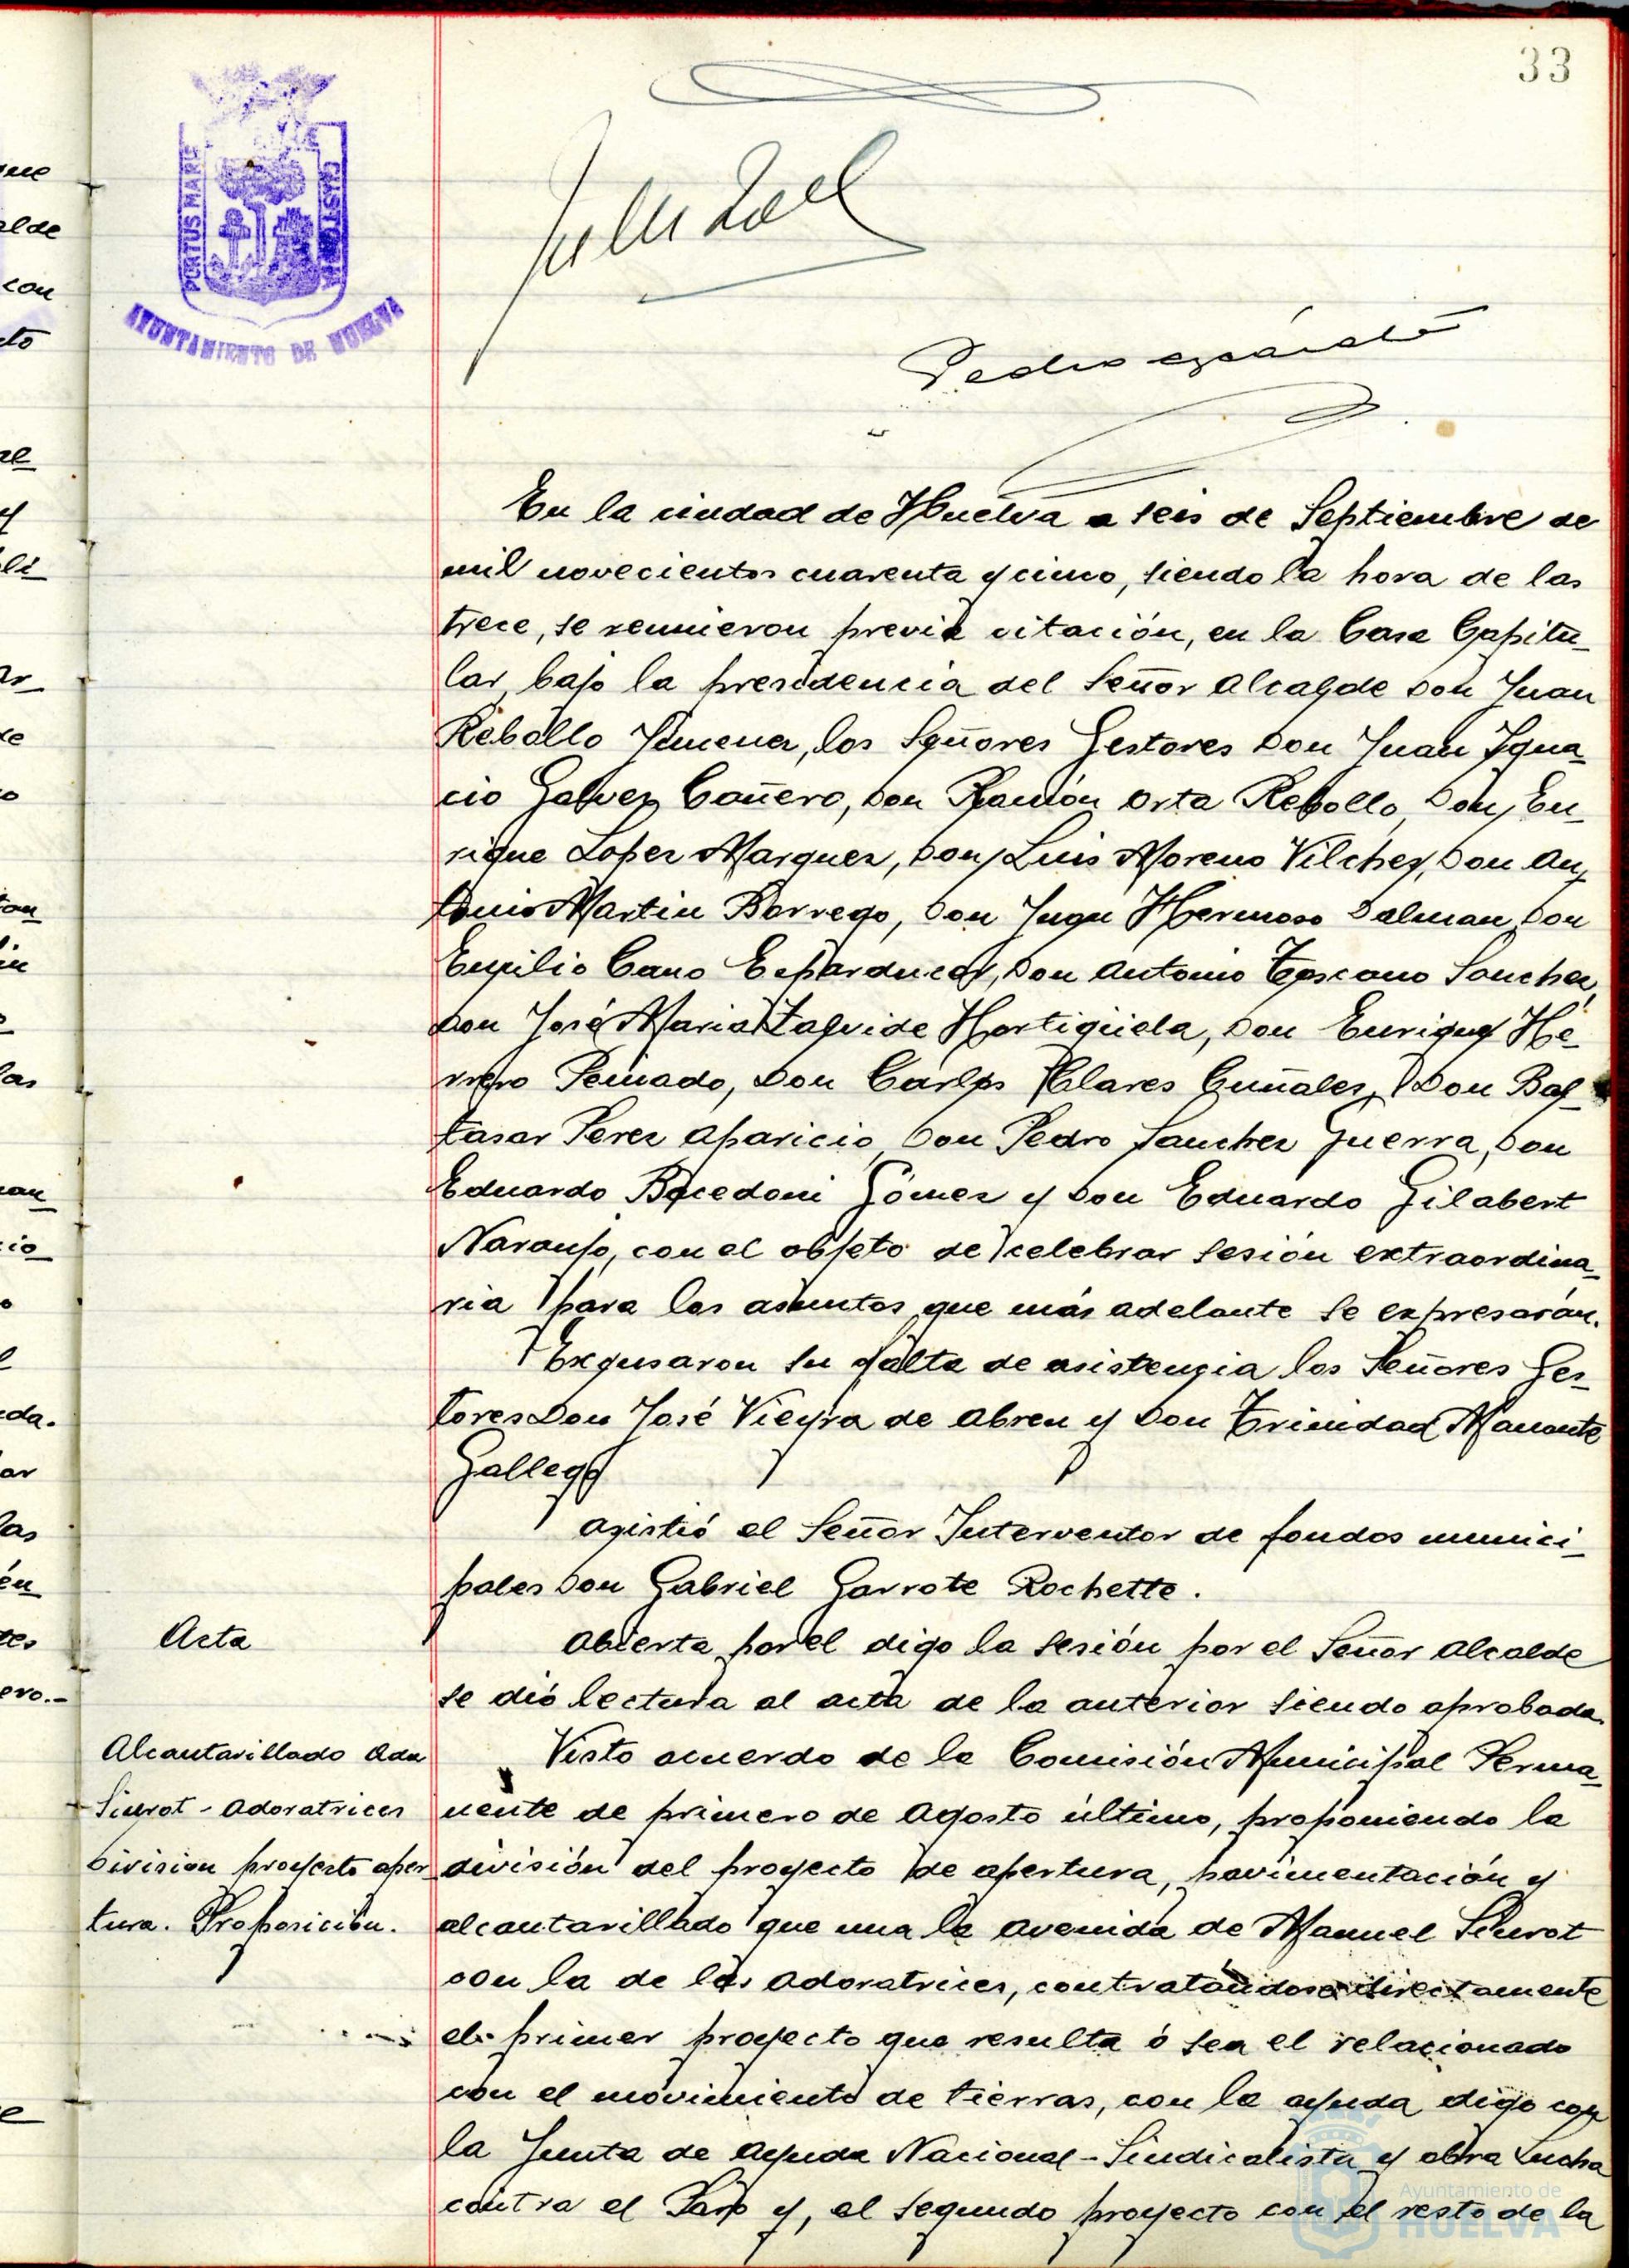 33
PORTUS MARIS
AYUNTAMIENTO DE HUELVA
Pedro
En la ciudad de Huelva a seis de Septiembre de
mil novecientos cuarenta y cinco, siendo la hora de las
trece, se reunieron previa citación, en la Casa Capitu_
lar, bajo la presidencia del Señor Alcalde Don Juan
Rebollo Jimenez, los Señores Gestores Don Juan Igna_
cio Galvez Cañero, Don Ramón Orta Rebollo, Don En_
rique Lopez Marquez, Don Luis Moreno Vilchez, Don An_
tonio Martin Borrego, Don Juan Hermoso Dalman, Don
Emilio Cano Esparducer, Don Antonio Toscano Sanchez,
Don José Maria Zalvide Hortigüela, Don Enrique He_
rrero Peinado, Don Carlos Clares Cuñales, Don Bal_
tasar Perez Aparicio, Don Pedro Sanchez Guerra, Don
Eduardo Bacedoni Gómez y Don Eduardo Gilabert
Naranjo, con el objeto de celebrar sesión extraordina_
ria para los asuntos que más adelante se expresarán.
Excusaron su falta de asistencia los Señores Ges_
tores Don José Vieyra de Abreu y Don Trinidad Manante
Gallego
Asistió el Señor Interventor de fondos munici_
pales Don Gabriel Garrote Rochette.
Acta
Abierta por el digo la sesión por el Señor Alcalde
se dió lectura al acta de la anterior siendo aprobada.
Alcantarillado Ada
Siurot - Adoratrices
Division proyecto aper_
tura. Proposición.
Visto acuerdo de la Comisión Municipal Perma_
nente de primero de Agosto último, proponiendo la
división del proyecto de apertura, pavimentación y
alcantarillado que una la Avenida de Manuel Siurot
con la de las Adoratrices, contratándose directamente
el primer proyecto que resulta ó sea el relacionado
con el movimiento de tierras, con la ayuda digo con
la Junta de Ayuda Nacional-Sindicalista y obra Lucha
contra el Paro y, el segundo proyecto con el resto de la
Ayuntamiento de
HUELVA